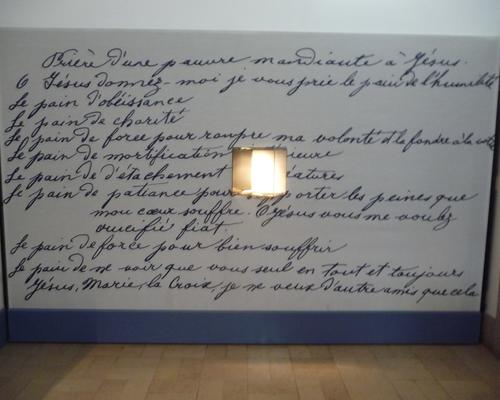 Prière d'une pauvre mandiante à Jésus.
O Jésus donnez-moi je vous prie le pain de l'humilité
Le pain d'obéissance
Le pain de charité
Le pain de force pour rompre ma volonté et la fondre à la
Le pain de mortification
Le pain de détachement
Le pain de patiance pour supporter les peines que
mon cœur souffre. O Jésus vous me voulez
crucifié fiat.
Le pain de force pour bien souffrir
Le pain de ne voir que vous seul en tout et toujours
Jésus, Marie, la Croix, je ne veux d'autre amis que cela